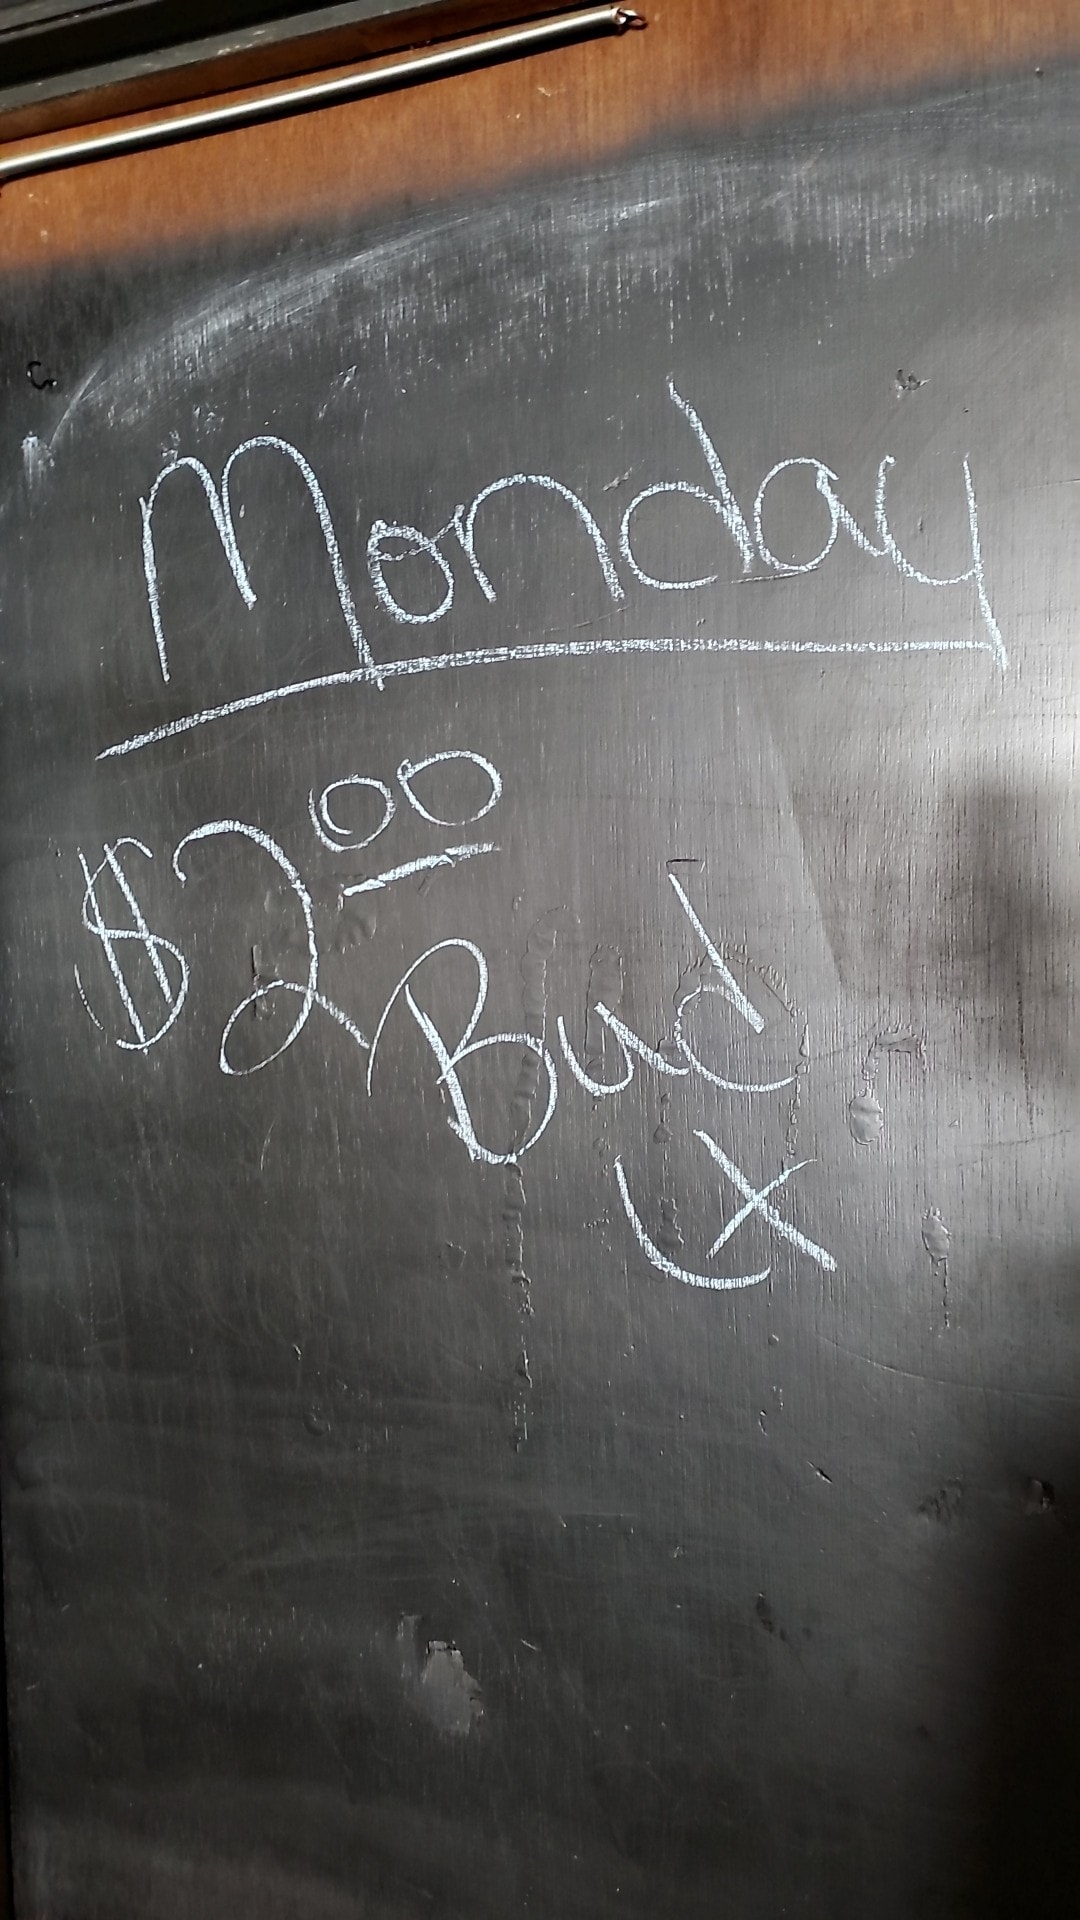 Monday
$2.00
Bud
Lt